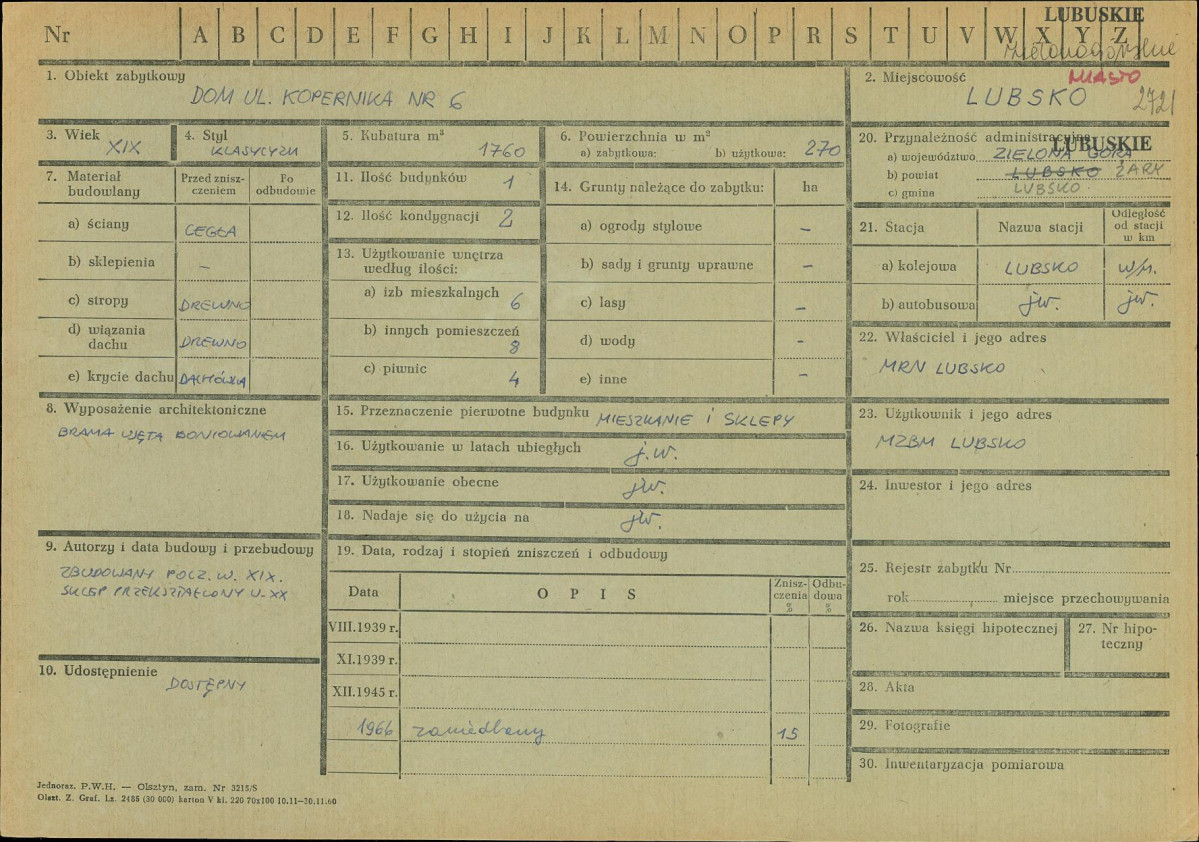 LUBUSKIE
Nr A B C D E F G H I J K L M N O P R S T U V W X Y Z
zielonogórskie
1. Obiekt zabytkowy
DOM UL. KOPERNIKA NR 6
2. Miejscowość
MIASTO
LUBSKO 2721
3. Wiek
XIX
4. Styl
KLASYCYZM
5. Kubatura m³
1760
6. Powierzchnia w m²
a) zabytkowa: b) użytkowa: 270
20. Przynależność administracyjna
LUBUSKIE
a) województwo ZIELONA GÓRA
b) powiat LUBSKO ŻARY
c) gmina LUBSKO
7. Materiał budowlany
Przed zniszczeniem
Po odbudowie
a) ściany CEGŁA
b) sklepienia –
c) stropy DREWNO
d) wiązania dachu DREWNO
e) krycie dachu DACHÓWKA
8. Wyposażenie architektoniczne
BRAMA UJĘTA BONIOWANIEM
9. Autorzy i data budowy i przebudowy
ZBUDOWANY POCZ. W. XIX.
SKLEP PRZEKSZTAŁCONY W. XX
10. Udostępnienie
DOSTĘPNY
11. Ilość budynków 1
12. Ilość kondygnacji 2
13. Użytkowanie wnętrza
według ilości:
a) izb mieszkalnych 6
b) innych pomieszczeń 8
c) piwnic 4
14. Grunty należące do zabytku: ha
a) ogrody stylowe –
b) sady i grunty uprawne –
c) lasy –
d) wody –
e) inne –
15. Przeznaczenie pierwotne budynku MIESZKANIE i SKLEPY
16. Użytkowanie w latach ubiegłych j.w.
17. Użytkowanie obecne jw.
18. Nadaje się do użycia na jw.
19. Data, rodzaj i stopień zniszczeń i odbudowy
Data OPIS Zniszczenia % Odbudowa %
VIII.1939 r.
XI.1939 r.
XII.1945 r.
1966 zaniedbany 15
21. Stacja Nazwa stacji Odległość od stacji w km
a) kolejowa LUBSKO w/m.
b) autobusowa jw. jw.
22. Właściciel i jego adres
MRN LUBSKO
23. Użytkownik i jego adres
MZBM LUBSKO
24. Inwestor i jego adres
25. Rejestr zabytku Nr
rok miejsce przechowywania
26. Nazwa księgi hipotecznej
27. Nr hipoteczny
28. Akta
29. Fotografie
30. Inwentaryzacja pomiarowa
Jednoraz. P.W.H. — Olsztyn, zam. Nr 3215/S
Olszt. Z. Graf. Lz. 2485 (30 000) karton V kl. 220 70x100 10.11—30.11.60